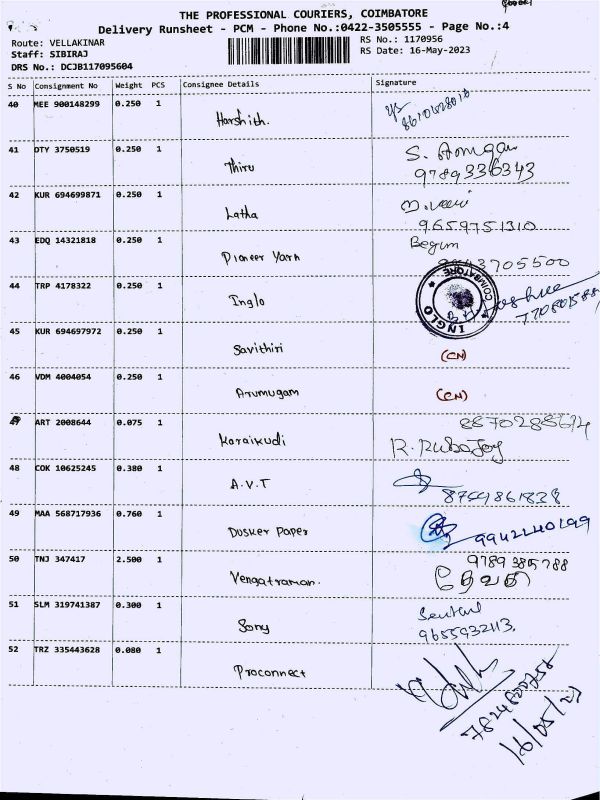 THE PROFESSIONAL COURIERS, COIMBATORE
Delivery Runsheet - PCM - Phone No.:0422-3505555 - Page No.:4
Route: VELLAKINAR
RS No.: 1170956
Staff: SIBIRAJ
RS Date: 16-May-2023
DRS No.: DCJB117095604
S No Consignment No Weight PCS Consignee Details Signature
40 MEE 900148299 0.250 1
Harshith.
41 DTY 3750519 0.250 1
S. Arrugan
Thiru
9789336343
42 KUR 694699871 0.250 1
Latha
9659751310
43 EDQ 14321818 0.250 1
Begum
Pioneer Yarn
44 TRP 4178322 0.250 1
Inglo
COIMBATORE
INGLO
45 KUR 694697972 0.250 1
Savithiri
(CN)
46 VDM 4004054 0.250 1
Arumugam
(CN)
47 ART 2008644 0.075 1
8870288614
Karaikudi
48 COK 10625245 0.380 1
A.V.T
8754861828
49 MAA 568717936 0.760 1
Dusker Paper
50 TNJ 347417 2.500 1
9789385788
Vengatraman.
தேவகி
51 SLM 319741387 0.300 1
Sony
9655932113.
52 TRZ 335443628 0.080 1
Proconnect
16/05/23